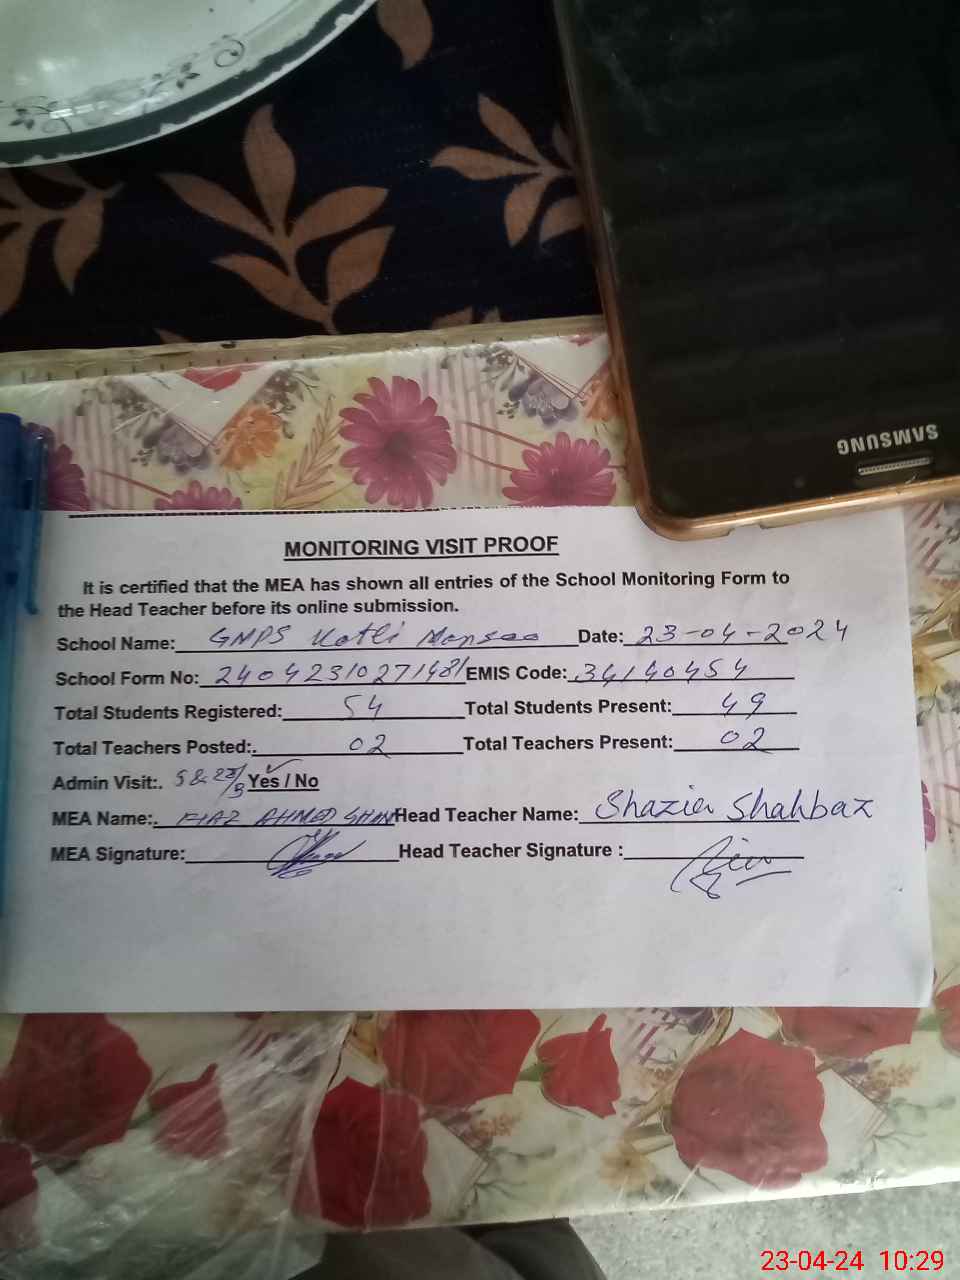 SAMSUNG
MONITORING VISIT PROOF
It is certified that the MEA has shown all entries of the School Monitoring Form to
the Head Teacher before its online submission.
School Name: GMPS Kotli Mansoo Date: 23-04-2024
School Form No: 24042310271481 EMIS Code: 34140454
Total Students Registered: 54 Total Students Present: 49
Total Teachers Posted:. 02 Total Teachers Present: 02
Admin Visit:. Yes / No
MEA Name:. FIAZ AHMED Head Teacher Name: Shazia Shahbaz
MEA Signature: Head Teacher Signature :
23-04-24 10:29